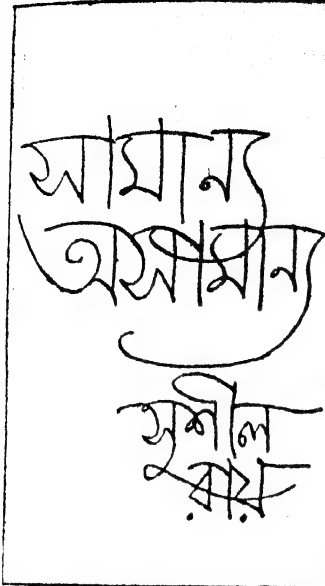 সামান্য
অসামান্য
সুশীল
রায়